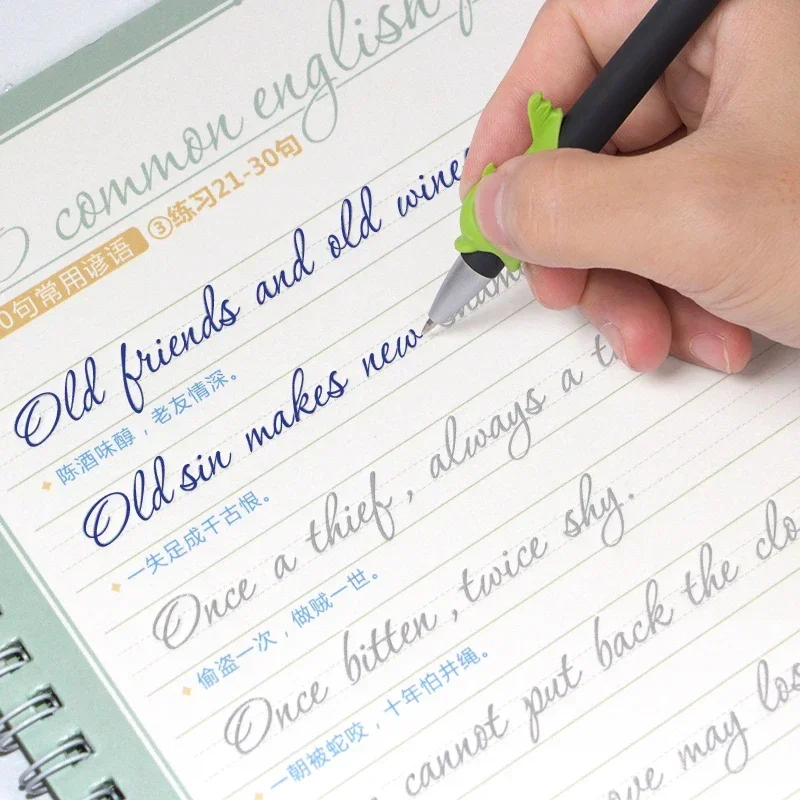 common english
0句常用谚语 ③练习21-30句
Old friends and old wines
陈酒味醇，老友情深。
Old sin makes new shame
一失足成千古恨。
Once a thief, always a t
偷盗一次，做贼一世。
Once bitten, twice shy.
一朝被蛇咬，十年怕井绳。
cannot put back the clo
ove may los